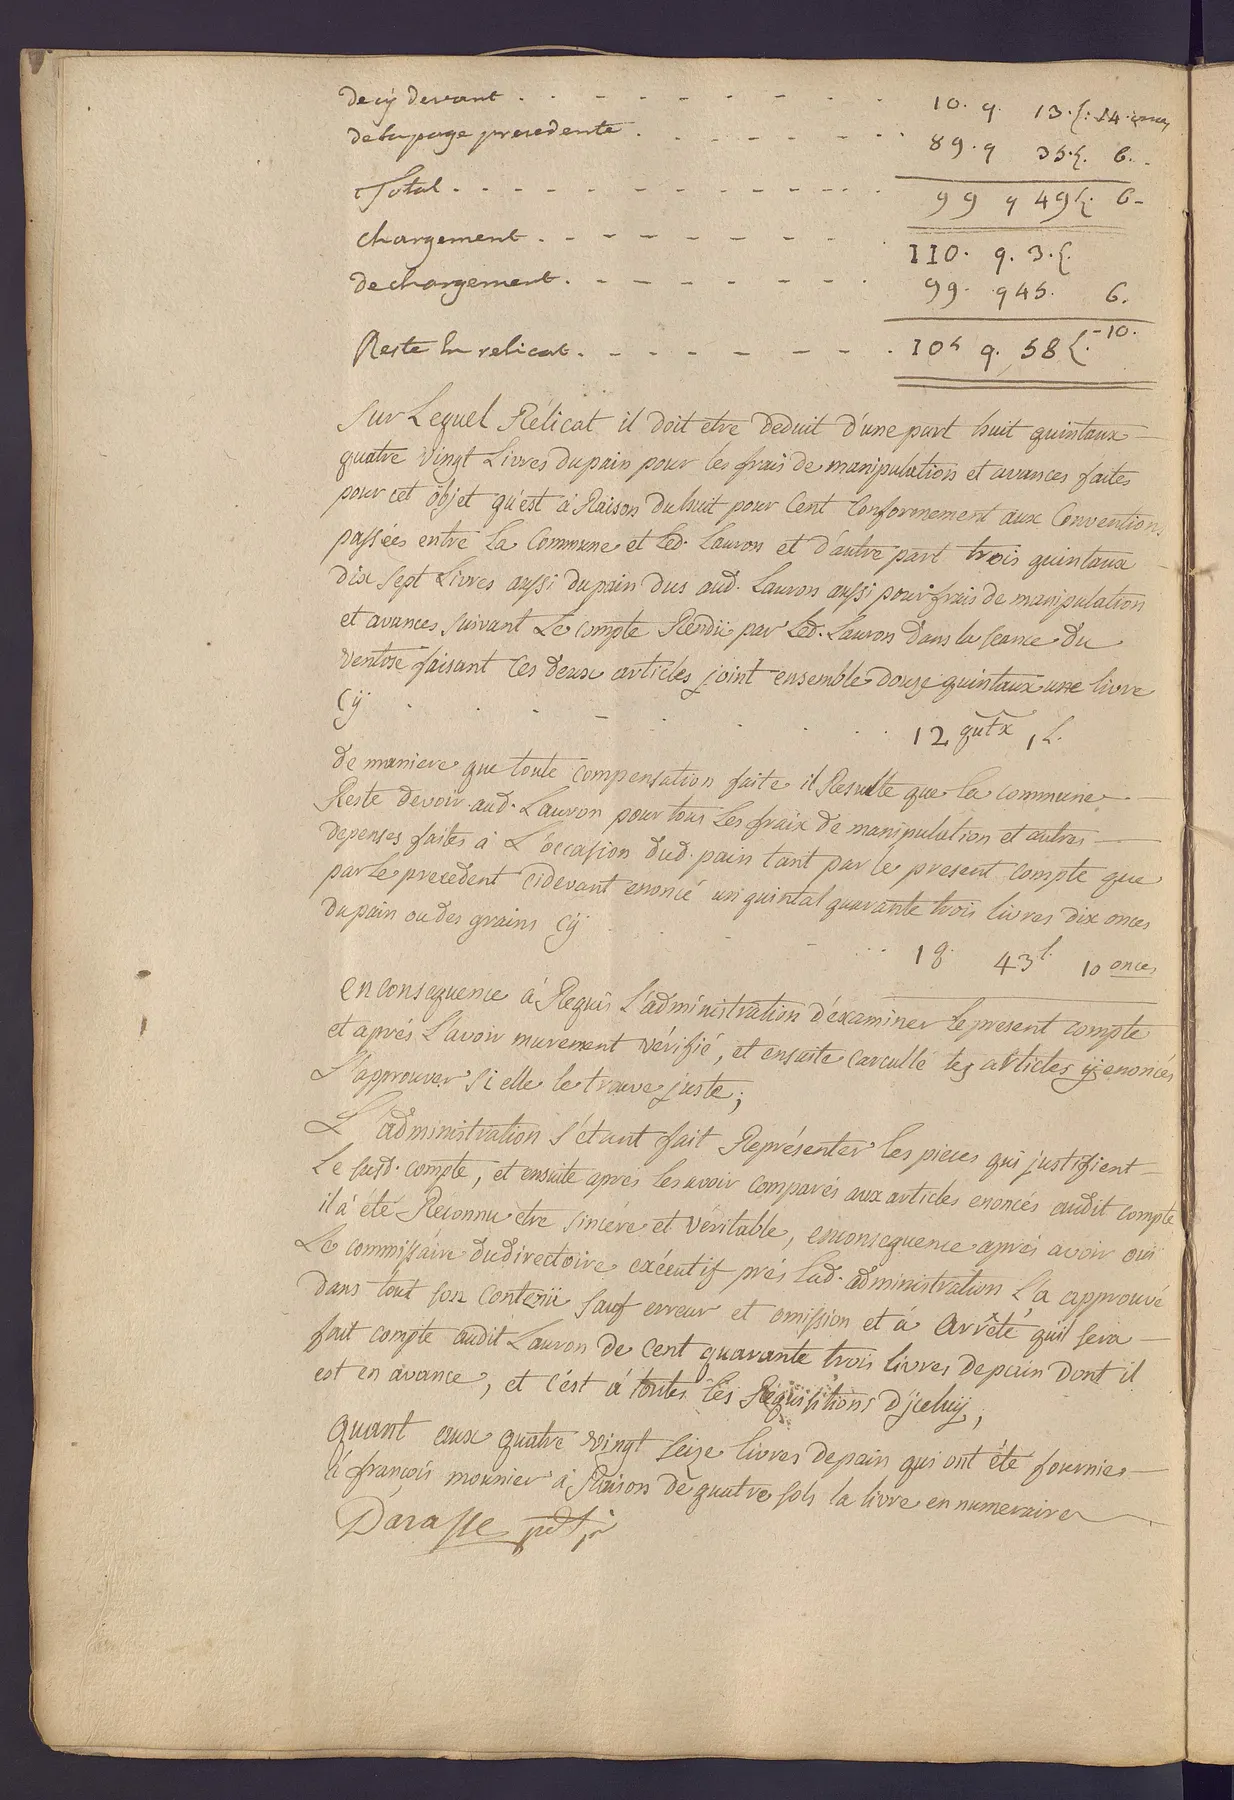 de cy devant . . . . . . . . . 10. q. 13. l: 14. onces
de la page precedente . . . . . . . . 89. q 35. l. 6.
Total . . . . . . . . . . . . 99 q 49 l. 6
chargement . . . . . . . . 110. q. 3. l.
dechargement . . . . . . . . 99. q 45. 6.
Reste en relicat . . . . . . . . 10 q. 58 l. 10.
Sur Lequel Rélicat il doit etre deduit d'une part huit quintaux
quatre vingt Livres du pain pour les frais de manipulation et avances faites
pour cet objet qu'est à Raison du huit pour Cent Conformement aux Conventions
passées entre La Commune et Led. Lauron et d'autre part trois quintaux
dix sept Livres aussi du pain dus aud. Lauron aussi pour frais de manipulation
et avances suivant Le compte Rendû par Led. Lauron dans la seance du
ventose faisant ces deux articles joint ensemble douze quintaux une livre
Cy . . . . . . . . 12 qutx 1 L.
de maniere que toute compensation faite il Resulte que la commune
Reste devoir aud. Lauron pour tous Les fraix de manipulation et autres
depenses faites à L'occasion dud. pain tant par le present compte que
par Le precedent cidevant enoncé un quintal quarante trois livres dix onces
du pain ou des grains Cy . . . . 1 q. 43 l. 10 onces
en consequence à Requis L'administration d'examiner le present compte
et aprés L'avoir murement vérifié, et ensuite carcullé les articles y enoncés
L'approuver si elle le trouve juste;
L'administration s'étant fait Représenter les pieces qui justifient
Le susd. compte, et ensuite aprés les avoir comparés aux articles enoncés audit compte
il à été Reconnu etre sincére et véritable, en consequence aprés avoir oui
Le commissaire du directoire exécutif prés lad. administration L'a approuvé
dans tout son contenû sauf erreur et omission et à Arrêté qu'il sera
fait compte audit Lauron de Cent quarante trois livres de pain dont il
est en avance, et c'est à toutes les Requisitions d'jceluy,
quant aux quatre vingt seize livres de pain qui ont été fournies
à françois mounier à Raison de quatre sols la livre en numeraire
Darasse pdt